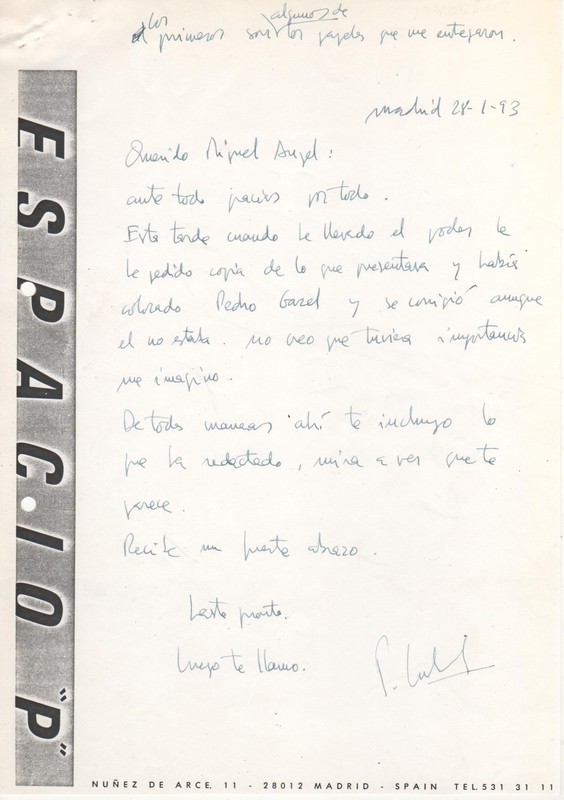 los algunos de
primeros son los papeles que me entregaron.
Madrid 28-1-93
Querido Miguel Angel:
ante todo gracias por todo.
Esta tarde cuando he llevado el poder le
he pedido copia de lo que presentara y había
colocado Pedro Garel y se corrigió aunque
el no estaba. no creo que tuviera importancia
me imagino.
De todas maneras ahí te incluyo lo
que ha redactado, mira a ver que te
parece.
Recibe un fuerte abrazo.
Hasta pronto.
Luego te llamo.
ESPACIO "P"
NUÑEZ DE ARCE, 11 - 28012 MADRID - SPAIN TEL.531 31 11